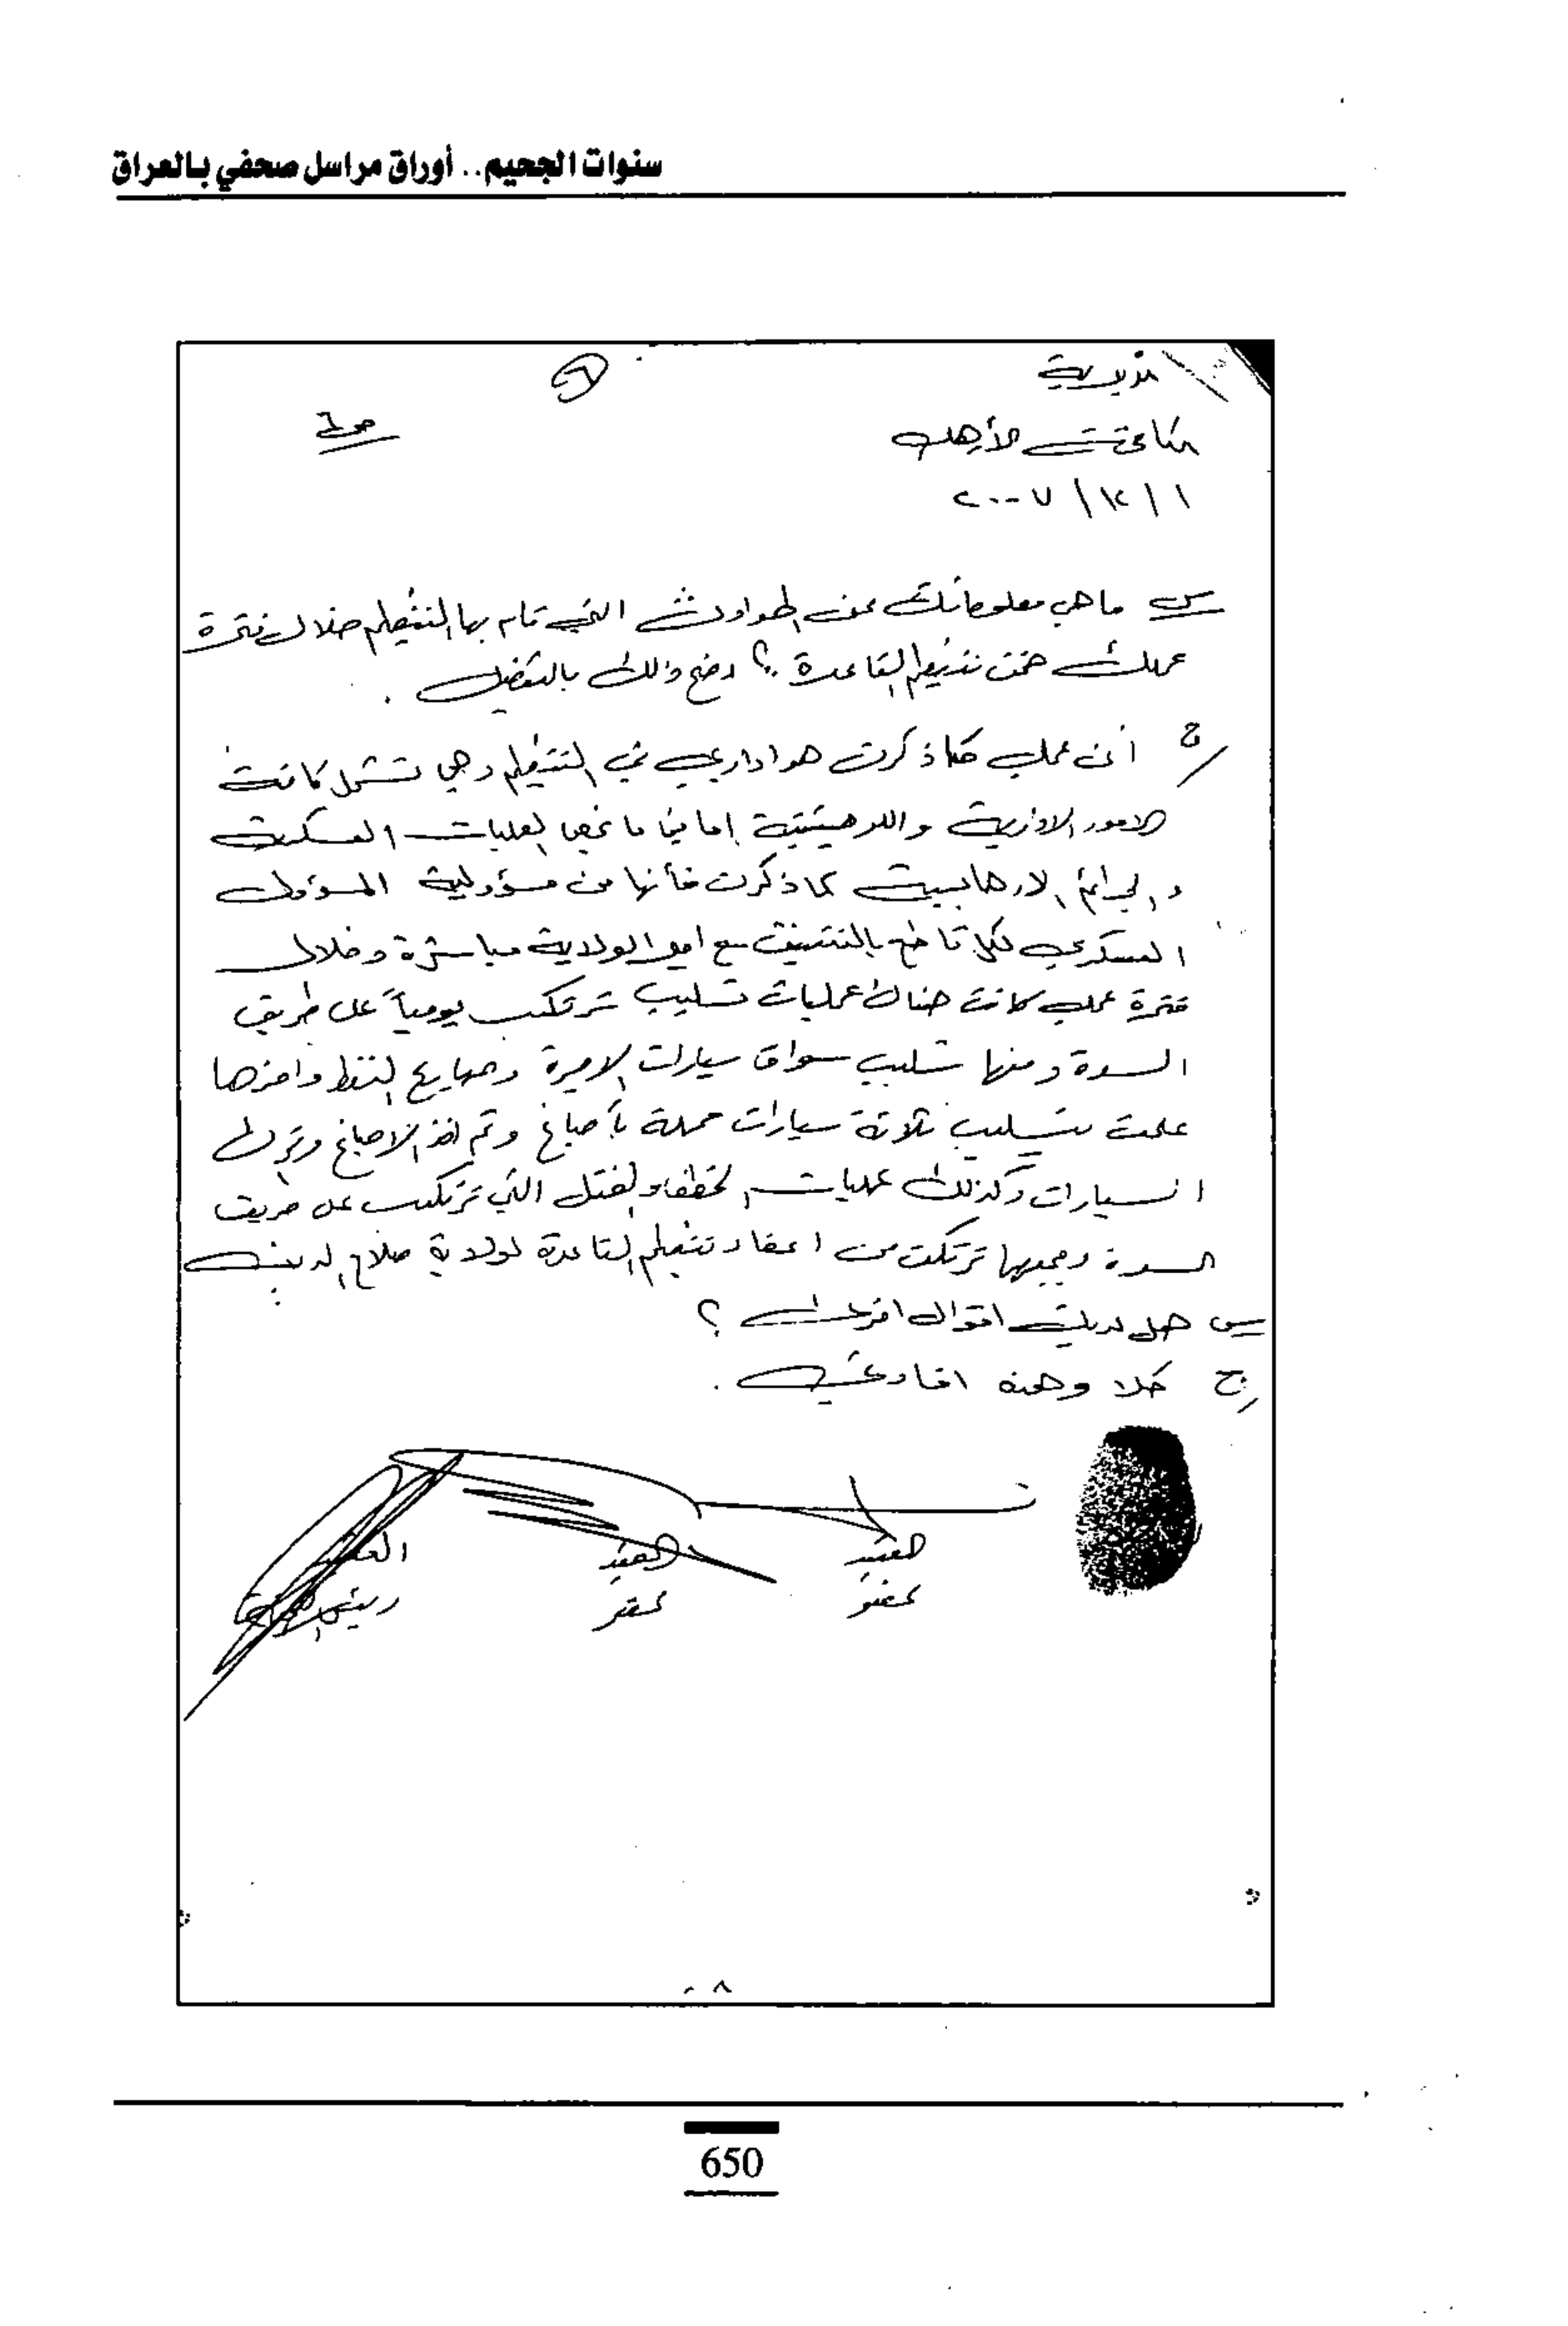 سنوات الجحيم.. أوراق مراسل صحفي بالعراق
مديرية
مكافحة الأرهاب
١ / ١٢ / ٢٠٠٧
ص٦
س ما هي معلوماتك عن الحوادث التي قام بها التنظيم خلال فترة
عملك ضمن تنظيم القاعدة ؟ وضح ذلك بالتفصيل .
ج أن عملي كما ذكرت هو اداري في التنظيم وهي تشمل كافة
الامور الادارية واللوجستية اما في ما يخص العمليات العسكرية
والجرائم الارهابية كما ذكرت فأنها من مسؤولية المسؤول
العسكري لكل قاطع بالتنسيق مع امير الولاية مباشرة وخلال
فترة عملي كانت هناك عمليات تسليب ترتكب يومياً على طريق
السدة ومنها تسليب سواق سيارات الاجرة وصهاريج النفط واخرها
علمت بتسليب ثلاثة سيارات محملة بأصباغ وتم اخذ الاصباغ وترك
السيارات وكذلك عمليات الخطف والقتل التي ترتكب على طريق
السدة وجميعها ترتكب من اعضاء تنظيم القاعدة لولاية صلاح الدين
س هل لديك اقوال اخرى ؟
ج كلا وهذه افادتي .
العقيد
عضو
العقيد
عضو
العقيد
رئيس
650